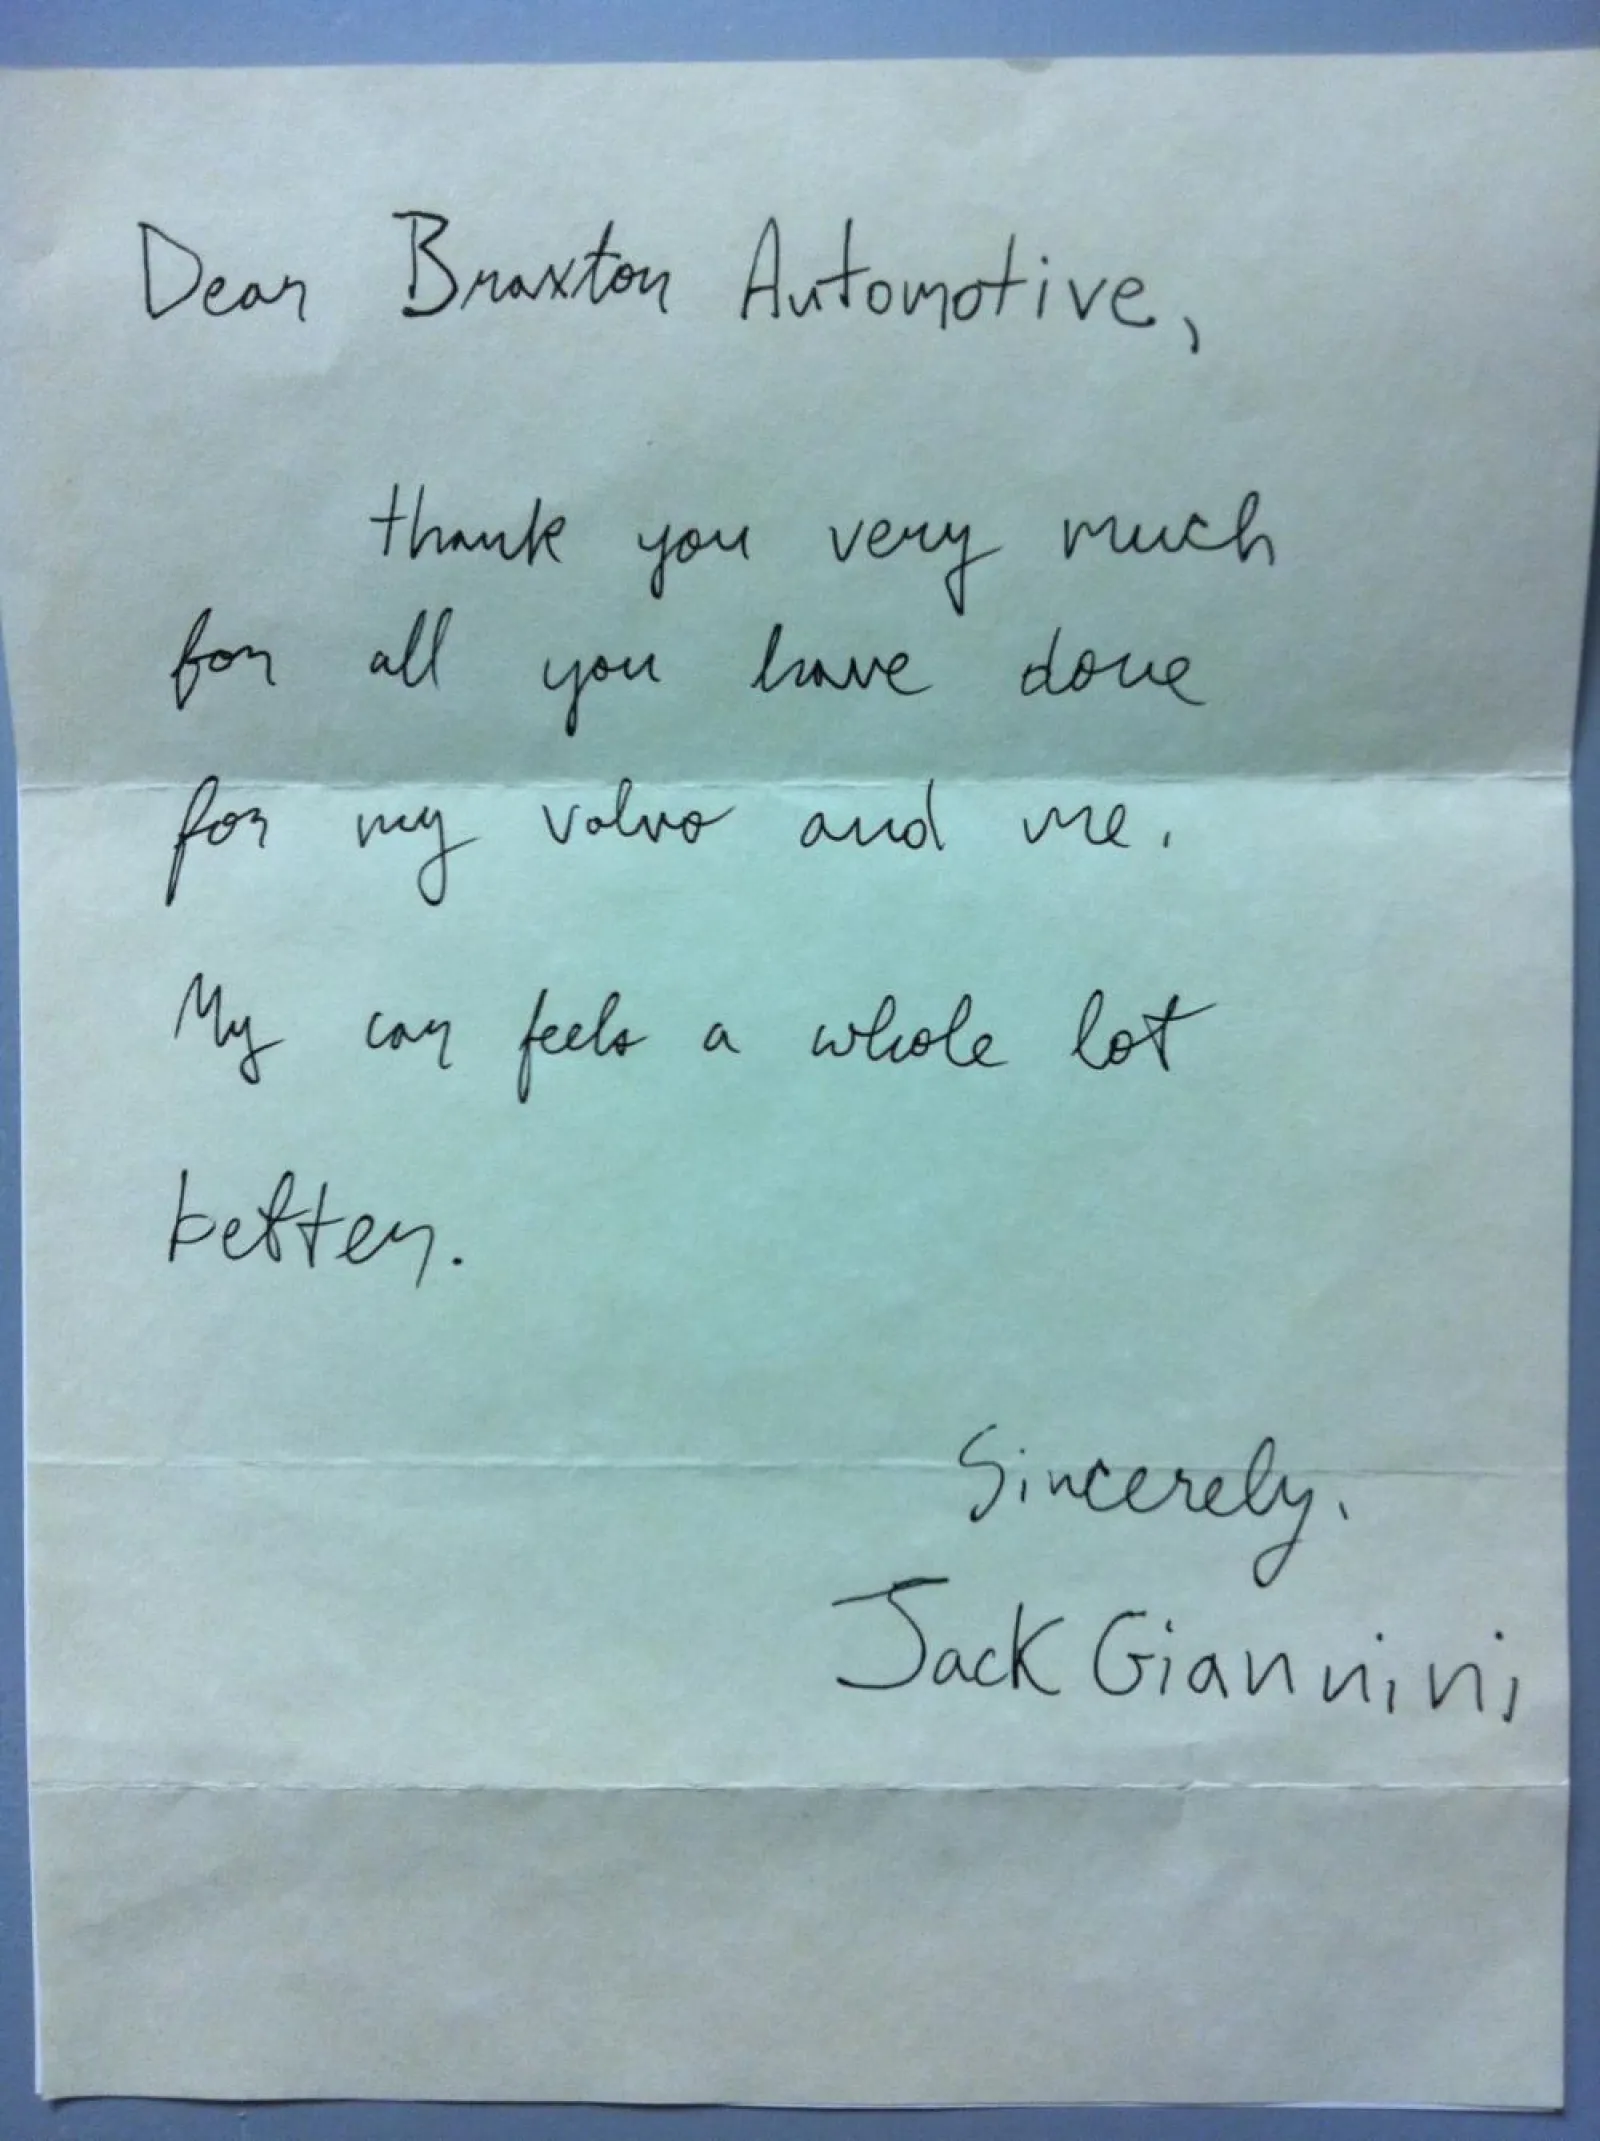 Dear Braxton Automotive,
thank you very much
for all you have done
for my volvo and me.
My car feels a whole lot
better.
Sincerely,
Jack Giannini